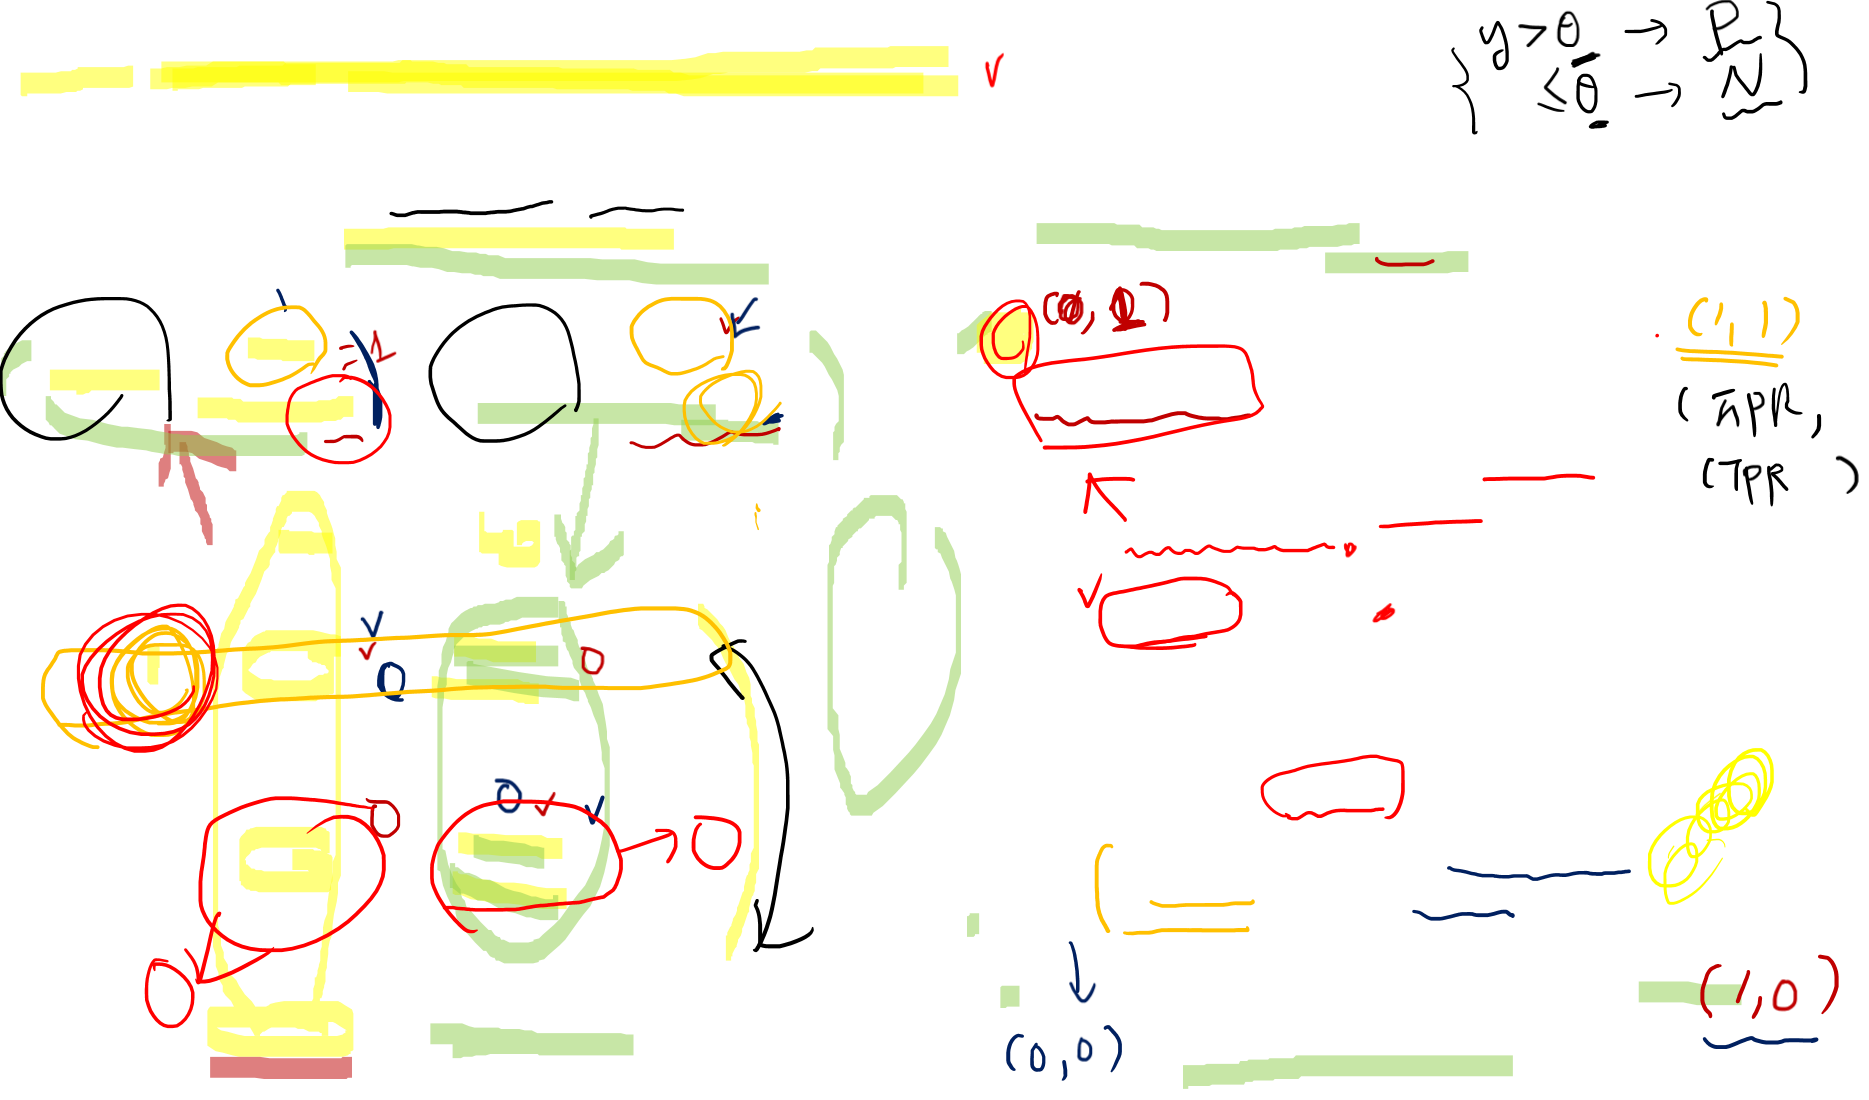 y > θ → P
≤ θ → N
= 1
(0, 1)
(1, 1)
(FPR,
(TPR )
0
0
0
0
0
0
(1, 0)
(0, 0)